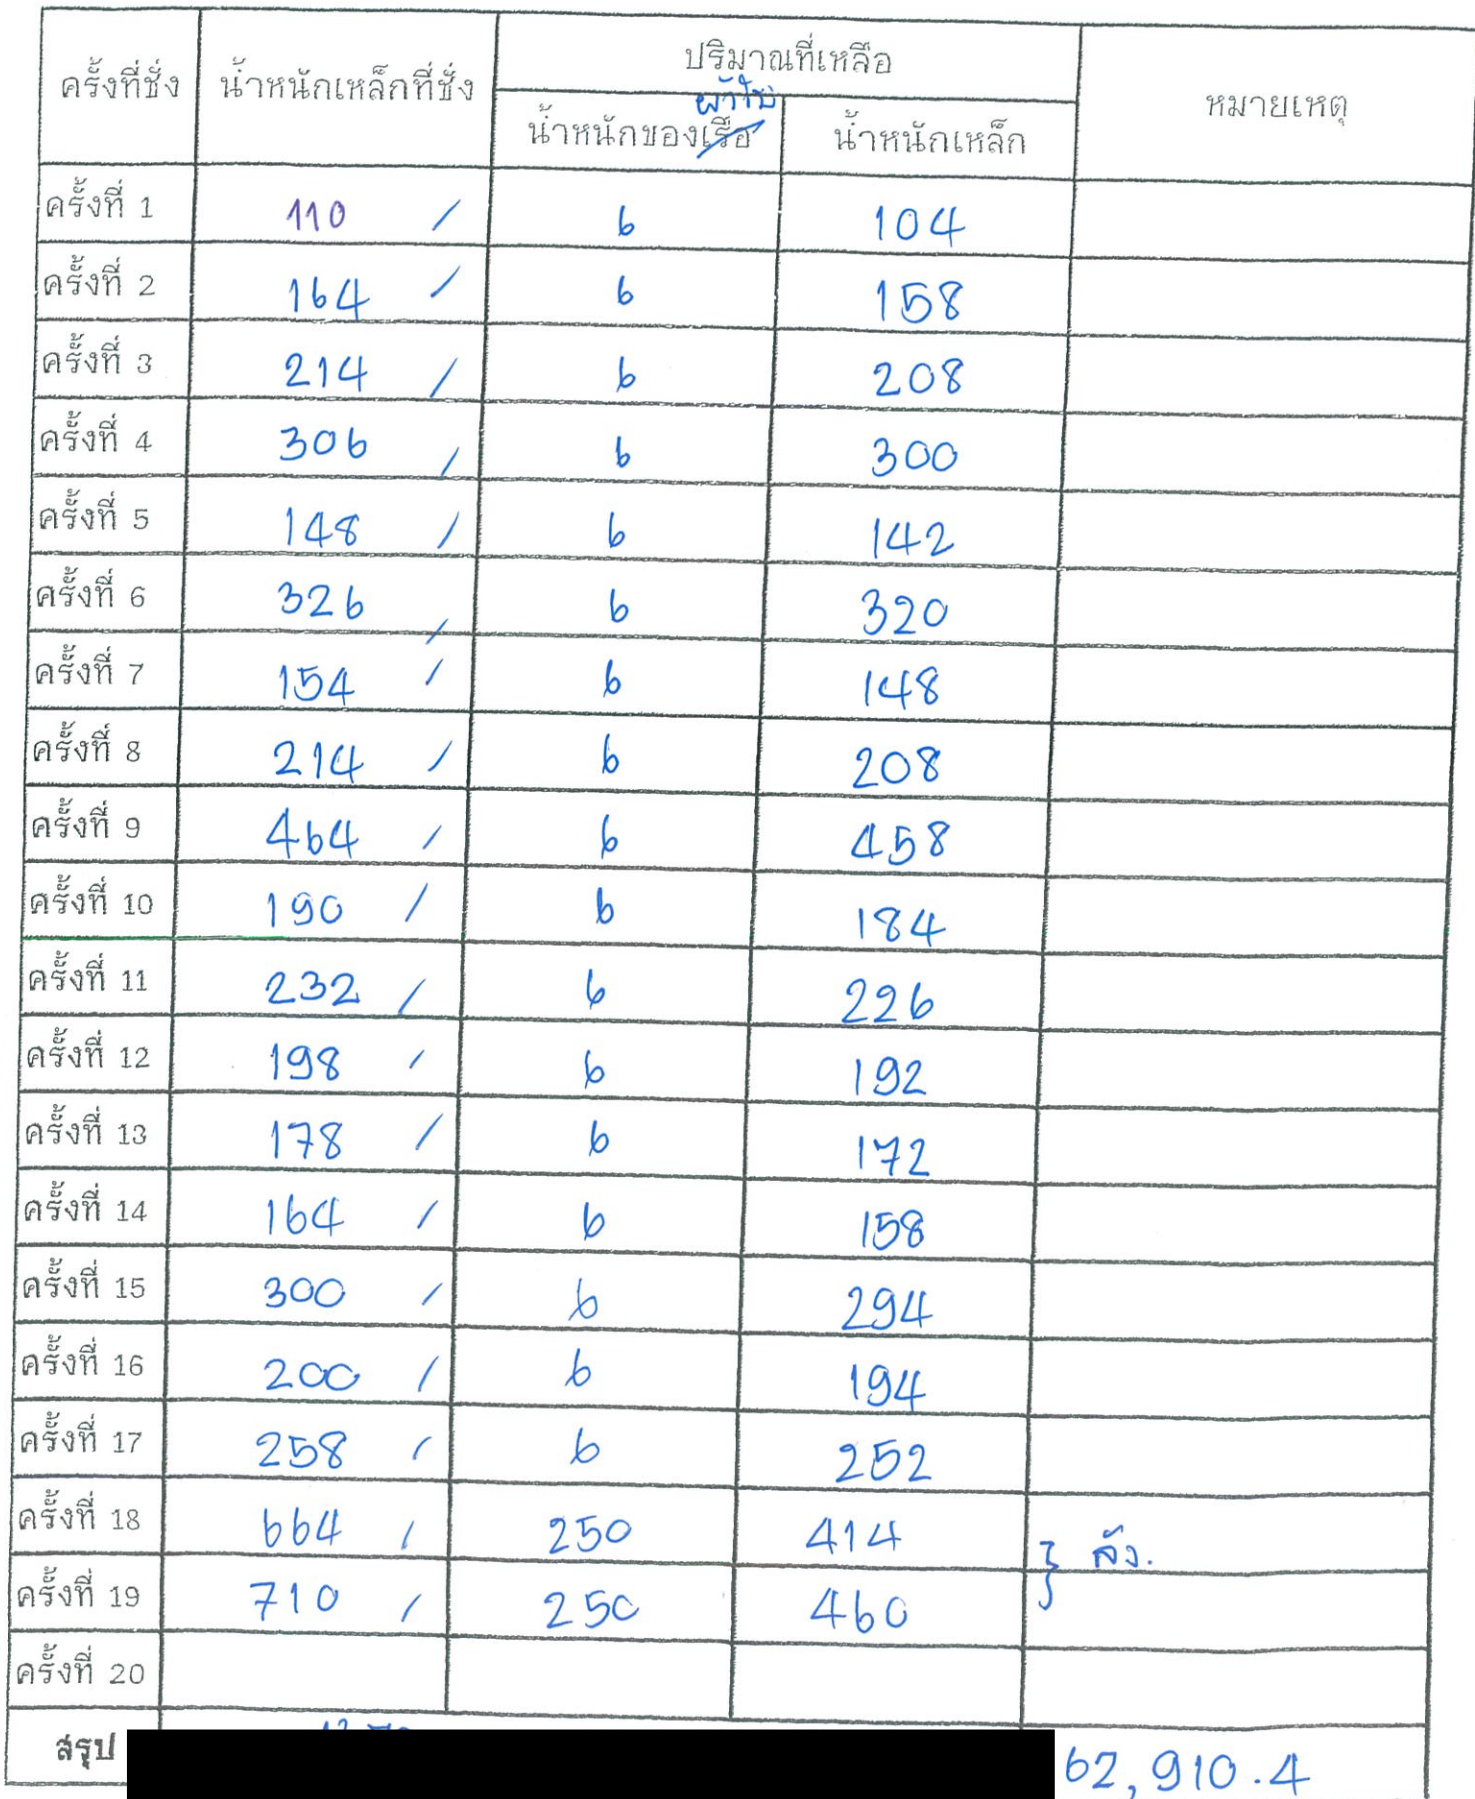 ครั้งที่ชั่ง น้ำหนักเหล็กที่ชั่ง ปริมาณที่เหลือ หมายเหตุ
ผ้าใบ
น้ำหนักของเรือ น้ำหนักเหล็ก
ครั้งที่ 1 110 / 6 104
ครั้งที่ 2 164 / 6 158
ครั้งที่ 3 214 / 6 208
ครั้งที่ 4 306 / 6 300
ครั้งที่ 5 148 / 6 142
ครั้งที่ 6 326 / 6 320
ครั้งที่ 7 154 / 6 148
ครั้งที่ 8 214 / 6 208
ครั้งที่ 9 464 / 6 458
ครั้งที่ 10 190 / 6 184
ครั้งที่ 11 232 / 6 226
ครั้งที่ 12 198 / 6 192
ครั้งที่ 13 178 / 6 172
ครั้งที่ 14 164 / 6 158
ครั้งที่ 15 300 / 6 294
ครั้งที่ 16 200 / 6 194
ครั้งที่ 17 258 / 6 252
ครั้งที่ 18 664 / 250 414 } ลัง.
ครั้งที่ 19 710 / 250 460
ครั้งที่ 20
สรุป 62,910.4